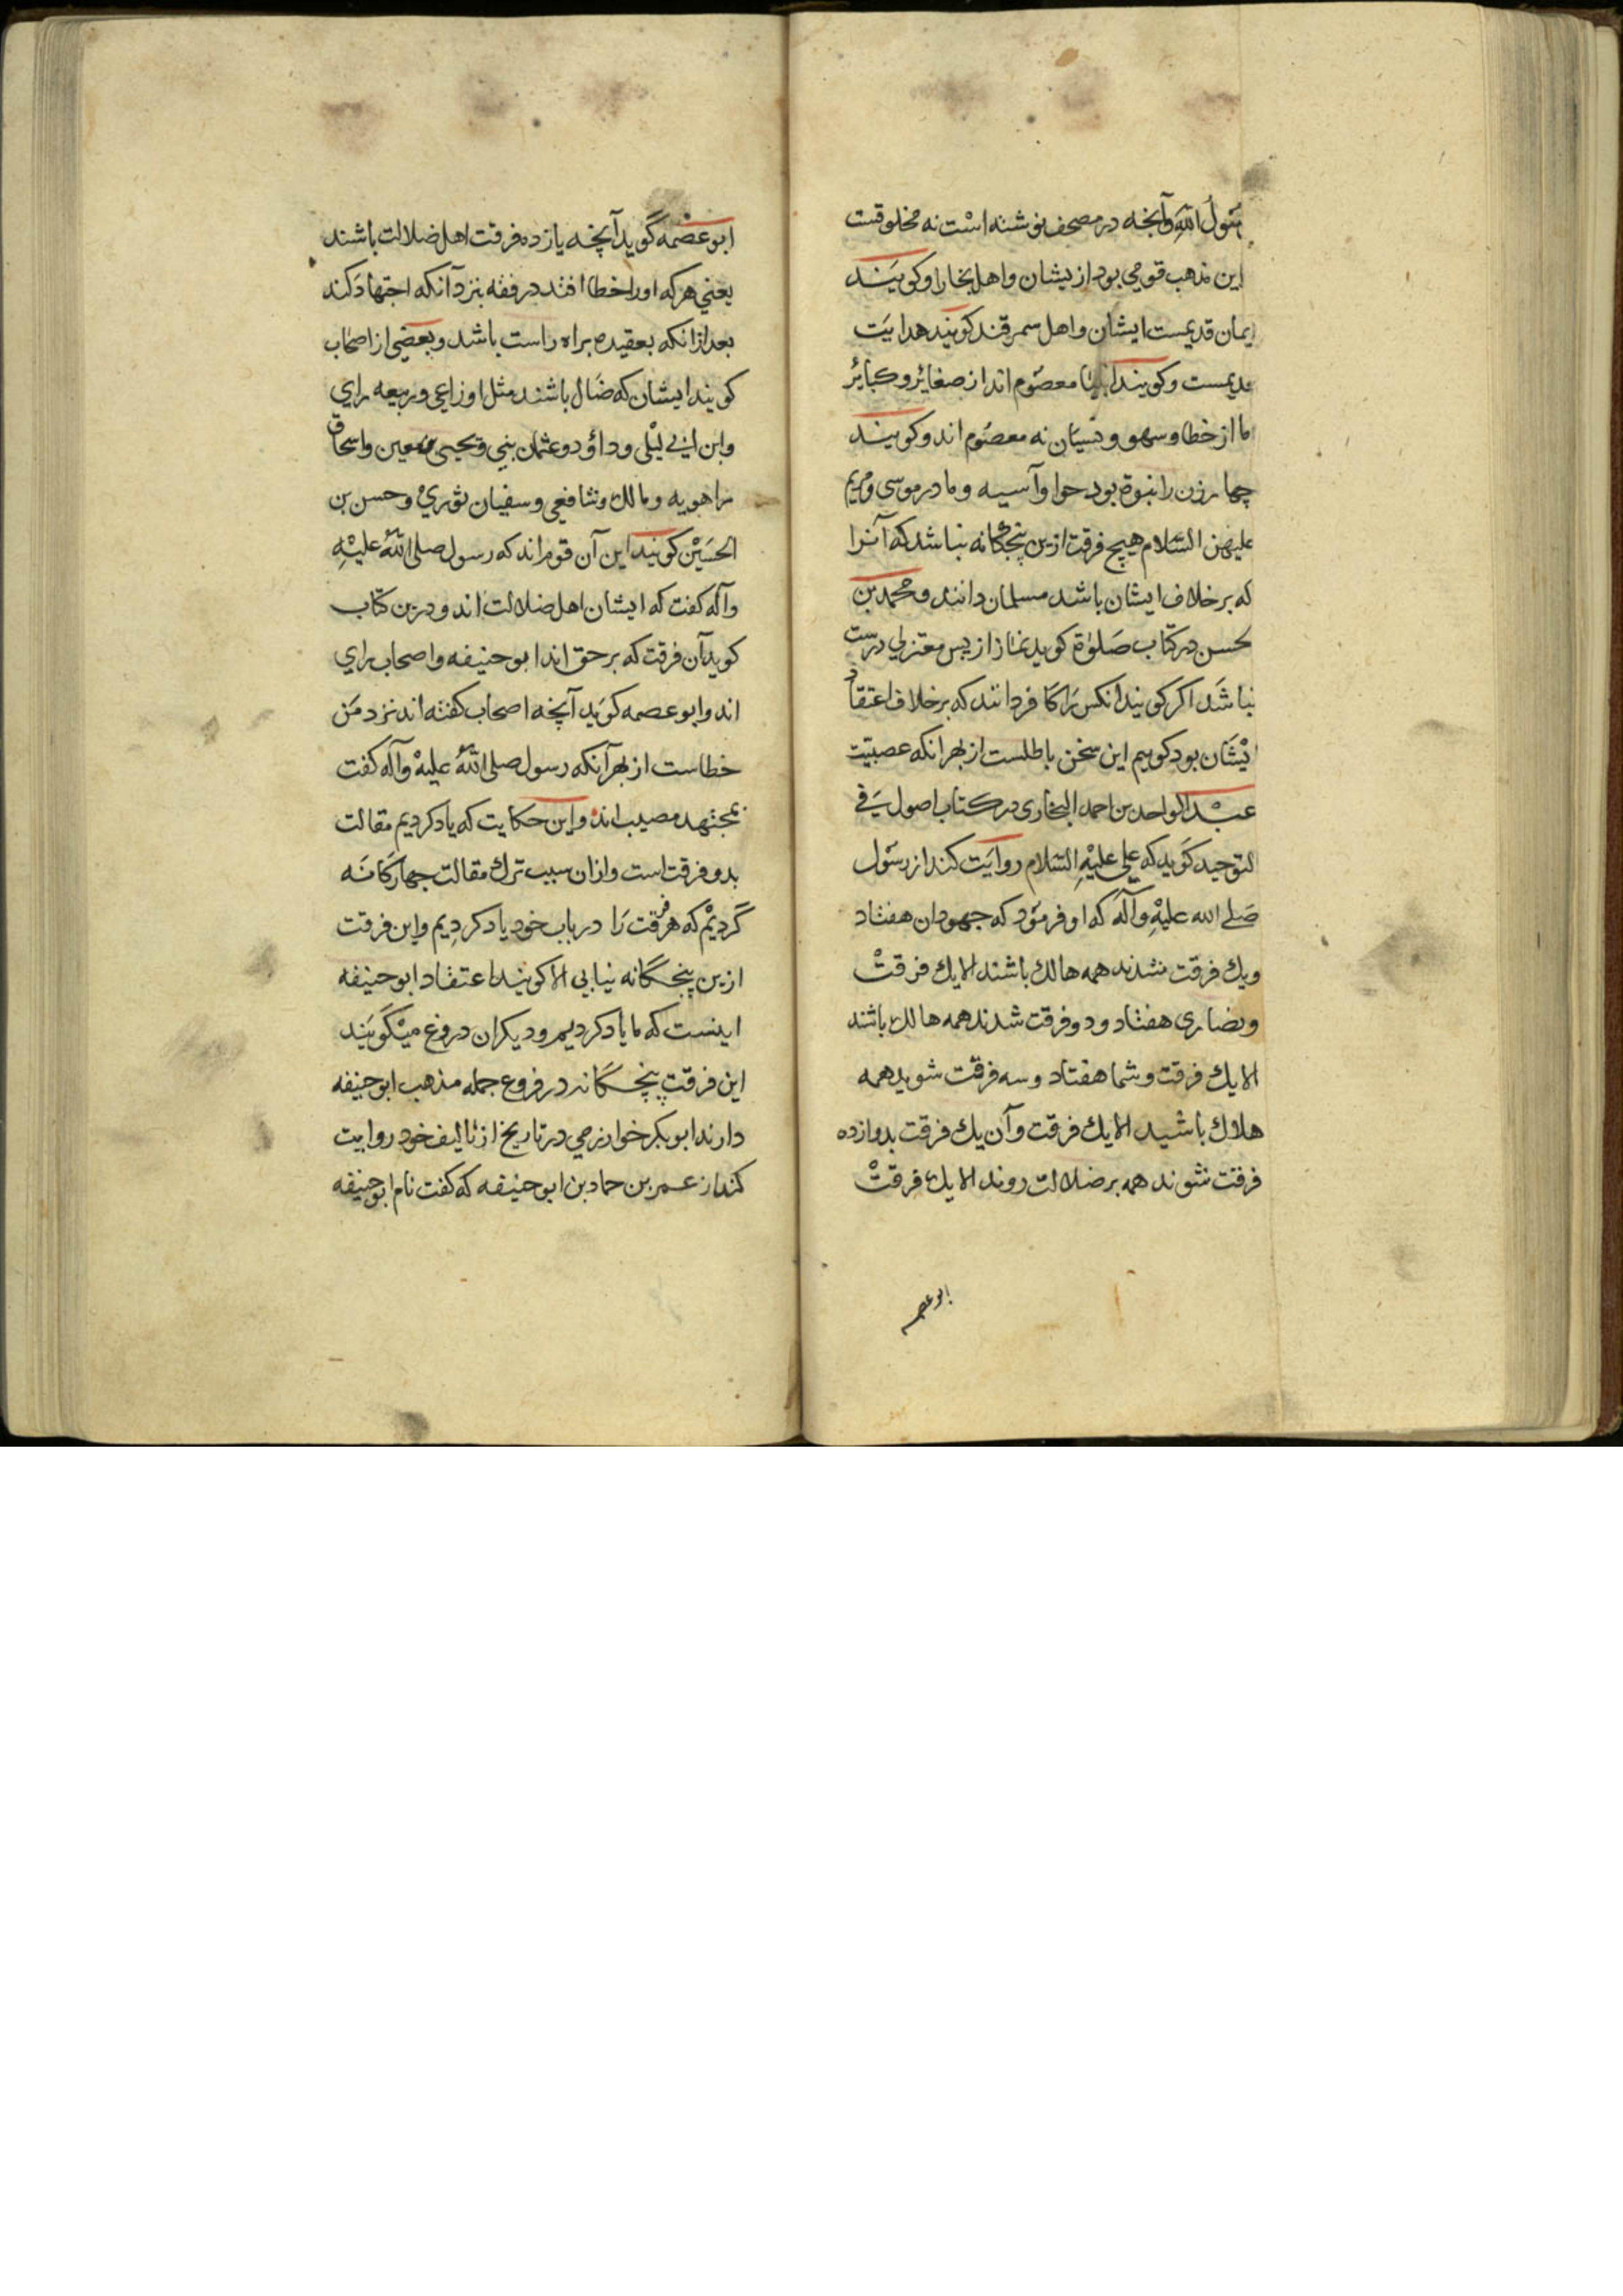 بقول الله وآنچه در مصحف نوشته است نه مخلوقست
این مذهب قومی بود ازیشان واهل بخارا وکویند
ایمان قدیمست ایشان واهل سمرقند کویند هدایت
قدیمست وکویند انبیا معصوم اند از صغایر وکبایر
اما از خطا وسهو ونسیان نه معصوم اند وکویند
چهار زن را نبوة بود حوا وآسیه ومادر موسی ومریم
علیهن السلام هیچ فرقت ازین پنجکانه نباشد که آنرا
که برخلاف ایشان باشد مسلمان دانند ومحمد بن
لحسن در کتاب صلوة کوید نماز از پس معتزلی درست
نباشد اکر کویند انکس را کافر دانند که برخلاف اعتقاد
ایشان بود کوییم این سخن باطلست از بهر آنکه عصبیت
عبد الواحد بن احمد البخاری در کتاب اصول فی
التوحید کوید که علی علیه السلام روایت کند از رسول
صلی الله علیه وآله که او فرمود که جهودان هفتاد
ویك فرقت شدند همه هالك باشند الا یك فرقت
ونصاری هفتاد ودو فرقت شدند همه هالك باشند
الا یك فرقت وشما هفتاد وسه فرقت شوید همه
هلاك باشید الا یك فرقت وآن یك فرقت بدوازده
فرقت شوند همه بر ضلالت روند الا یك فرقت
ابو عصمه
ابو عصمه گوید آنچه یازده فرقت اهل ضلالت باشند
یعنی هرکه او را خطا افتد در فقه بنزد آنکه اجتهاد کند
بعد از انکه بعقیده براه راست باشد وبعضی از اصحاب
کویند ایشان که ضال باشند مثل اوزاعی وربیعه رای
وابن ابی لیلی وداؤد وعثمان بنی ویحیی معین واسحاق
راهویه ومالك وشافعی وسفیان ثوری وحسن بن
الحسین کویند این آن قوم اند که رسول صلی الله علیه
وآله کفت که ایشان اهل ضلالت اند ودرین کتاب
کوید آن فرقت که بر حق اند ابو حنیفه واصحاب رای
اند وابو عصمه کوید آنچه اصحاب کفته اند نزد من
خطاست از بهر آنکه رسول صلی الله علیه وآله کفت
مجتهد مصیب اند واین حکایت که یاد کردیم مقالت
بدو فرقت است وازان سبب ترك مقالت چهارکانه
گردیم که هر فرقت را در باب خود یاد کردیم واین فرقت
ازین پنجگانه نیابی الا کویند اعتقاد ابو حنیفه
اینست که ما یاد کردیم ودیکران دروغ میگویند
این فرقت پنجگانه در فروع جمله مذهب ابو حنیفه
دارند ابوبکر خوارزمی در تاریخ از تالیف خود روایت
کند از عمر بن حماد بن ابو حنیفه که کفت نام ابو حنیفه